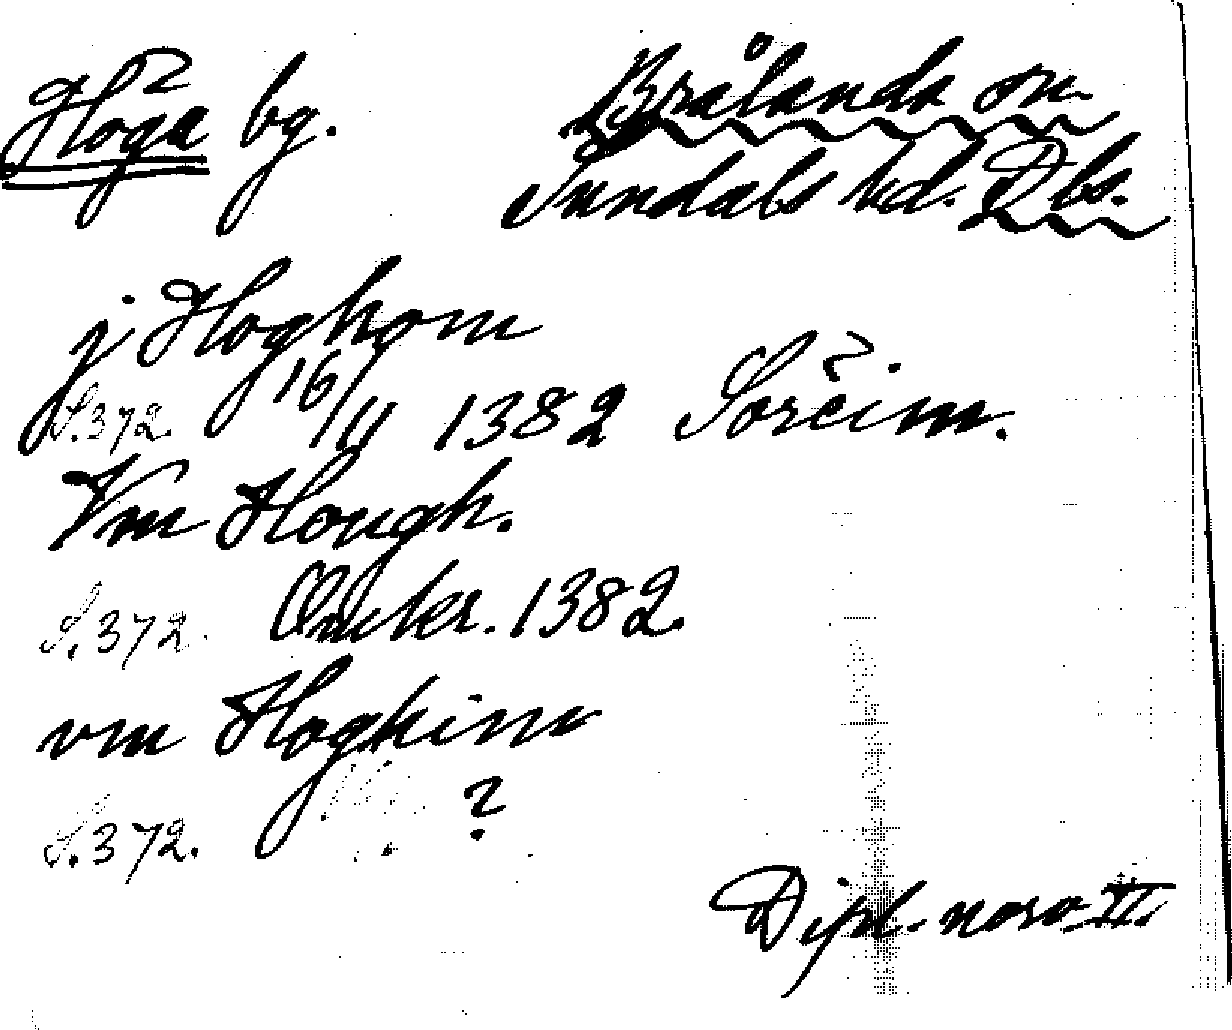 Höga bg.
Brålands sn.
Sundals hd. Dls.
j Hoghom
S. 372. 16/11 1382 Sörëim.
Vm Hough.
S. 372. Omkr. 1382.
vm Hoghim
S. 372. ?
Dipl. norv. II.